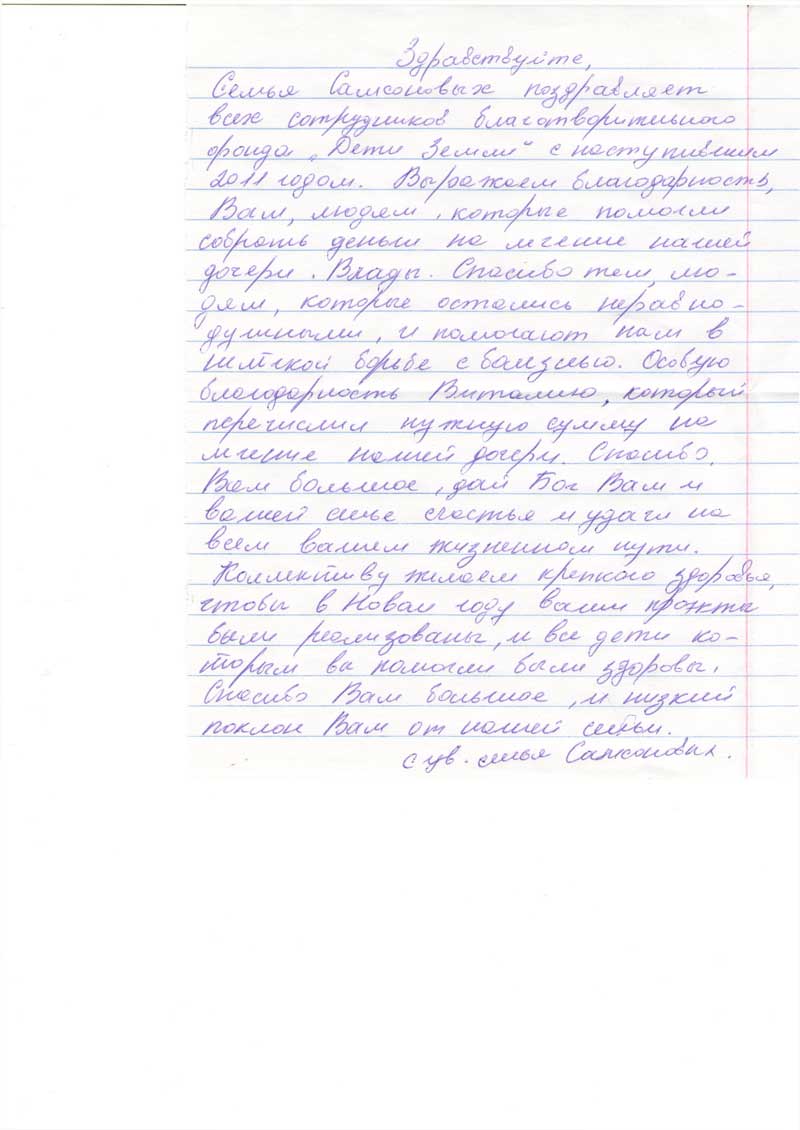 Здравствуйте,
Семья Самсоновых поздравляет
всех сотрудников благотворительного
фонда „Дети Земли" с наступившим
2011 годом. Выражаем благодарность,
Вам, людям, которые помогли
собрать деньги на лечение нашей
дочери. Влады. Спасибо тем, лю-
дям, которые остались неравно-
душными, и помогают нам в
нелёгкой борьбе с болезнью. Особую
благодарность Виталию, который
перечислил нужную сумму на
лечение нашей дочери. Спасибо,
Вам большое, дай Бог Вам и
вашей семье счастья и удачи на
всем вашем жизненном пути.
Коллективу желаем крепкого здоровья,
чтобы в Новом году ваши проэкты
были реализованы, и все дети ко-
торым вы помогли были здоровы.
Спасибо Вам большое, и низкий
поклон Вам от нашей семьи.
с ув. семья Самсоновых.